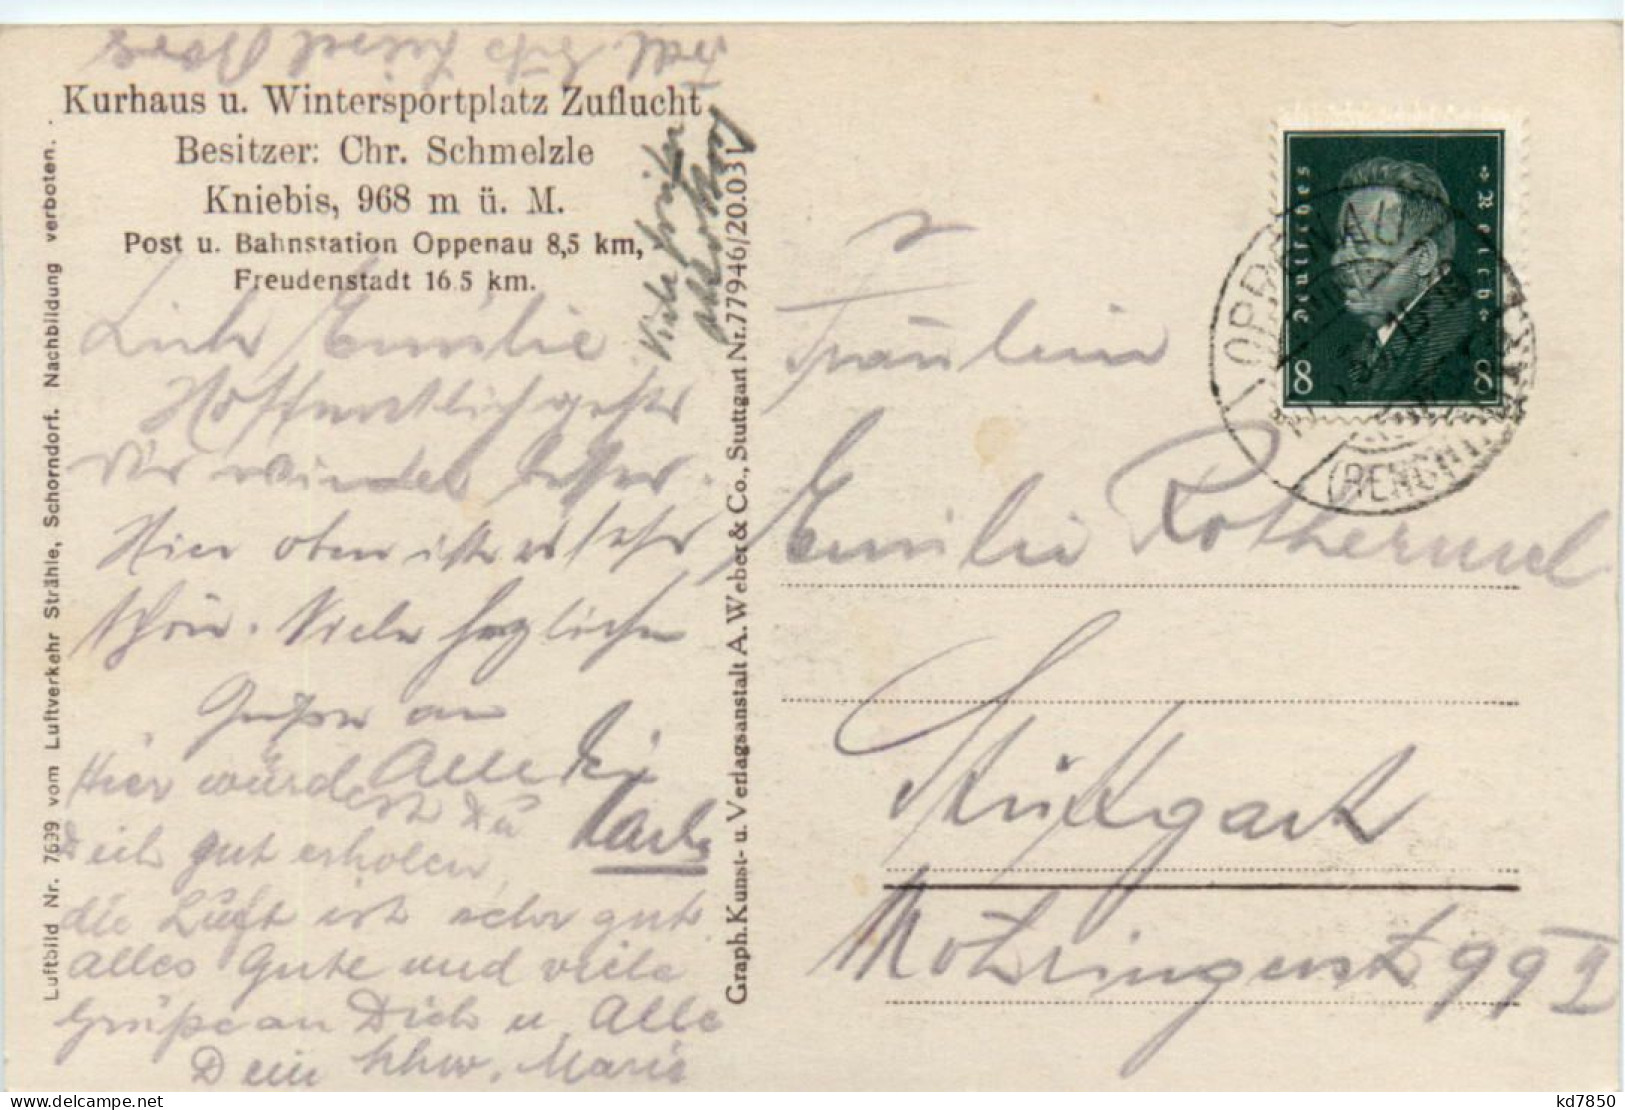 Kurhaus u. Wintersportplatz Zuflucht
Besitzer: Chr. Schmelzle
Kniebis, 968 m ü. M.
Post u. Bahnstation Oppenau 8,5 km,
Freudenstadt 16.5 km.
Liebe Emilie
Hoffentlich gehts
Dir wieder besser.
Hier oben ist es sehr
schön. Viele herzliche
Grüsse an
Alle Dein
Karl
Hier würdest Du
Dich gut erholen,
die Luft ist sehr gut
alles Gute und viele
Grüße an Dich u. Alle
Dein Marie
Luftbild Nr. 7699 vom Luftverkehr Strähle, Schorndorf. Nachbildung verboten.
Graph. Kunst- u. Verlagsanstalt A. Weber & Co., Stuttgart Nr. 77946/20.03
Fräulein
Emilie Rothermel
Stuttgart
Möhringerst 99 II
Deutsches Reich
8 8
OPPENAU
kd7850